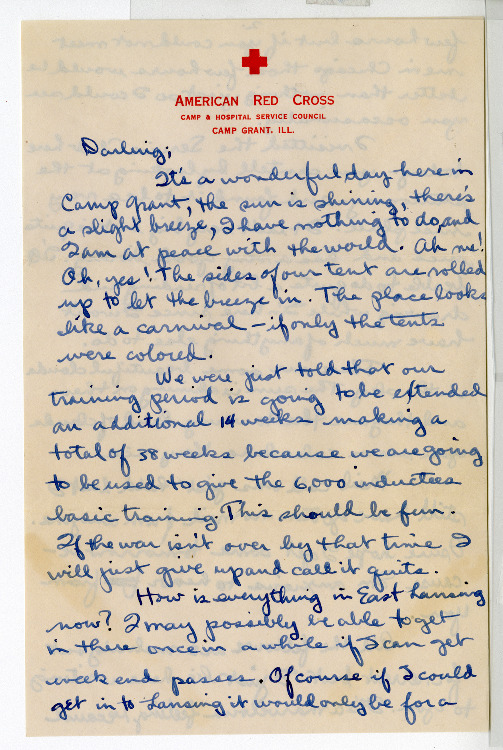 AMERICAN RED CROSS
CAMP & HOSPITAL SERVICE COUNCIL
CAMP GRANT, ILL.
Darling;
It's a wonderful day here in
Camp Grant, the sun is shining, there's
a slight breeze, I have nothing to do, and
I am at peace with the world. Ah me!
Oh, yes! The sides of our tent are rolled
up to let the breeze in. The place looks
like a carnival - if only the tents
were colored.
We were just told that our
training period is going to be extended
an additional 14 weeks making a
total of 38 weeks because we are going
to be used to give the 6,000 inductees
basic training. This should be fun.
If the war isn't over by that time I
will just give up and call it quits.
How is everything in East Lansing
now? I may possibly be able to get
in there once in a while if I can get
week end passes. Of course if I could
get in to Lansing it would only be for a